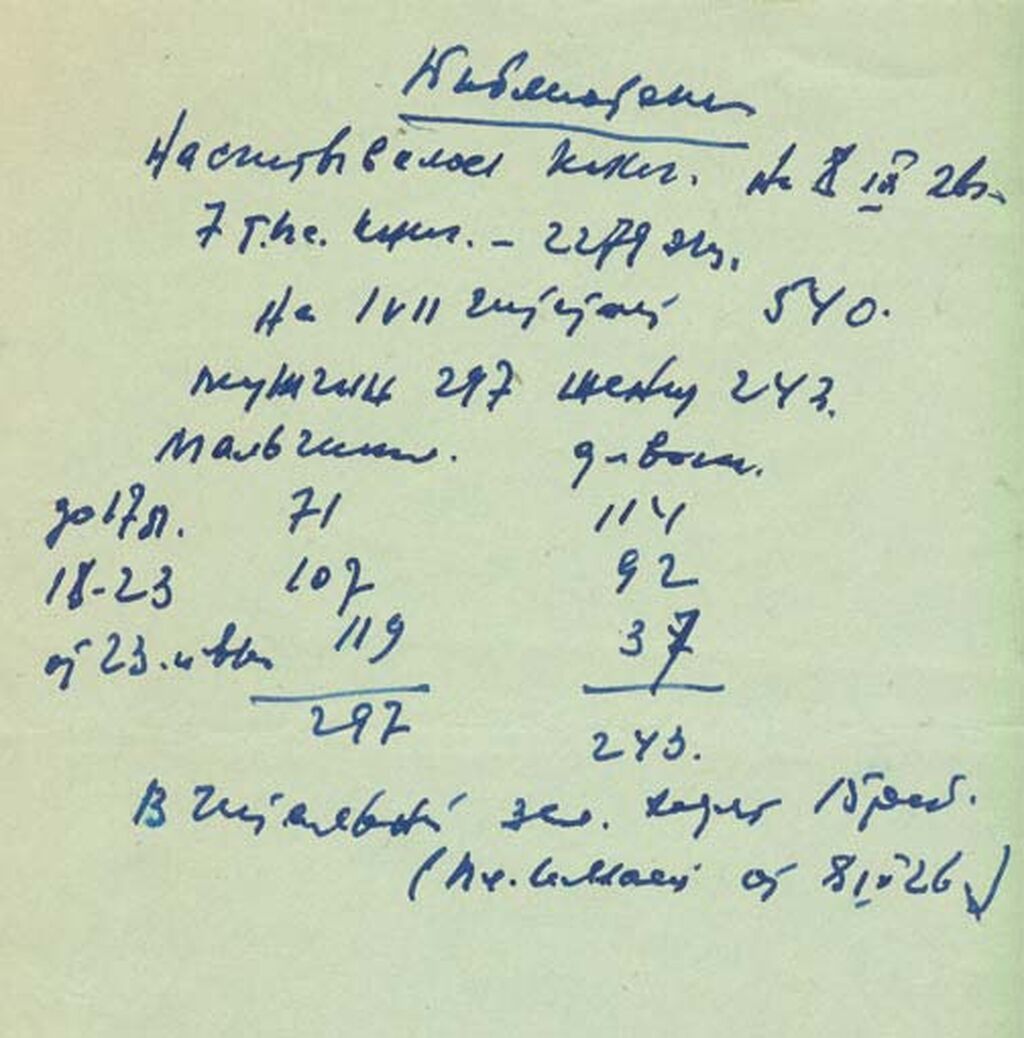 Библиотека
Насчитывалось книг. На 8 IX 26г.
7 т. книг. – 2279 экз.
На 1 VII читателей 540.
мужчин 297 женщ 243.
Мальчики. девочк.
до 17 л. 71 114
18-23 107 92
от 23. и выш 119 37
297 243.
В читальный зал. ходят 15 реб.
от 8 IX 26